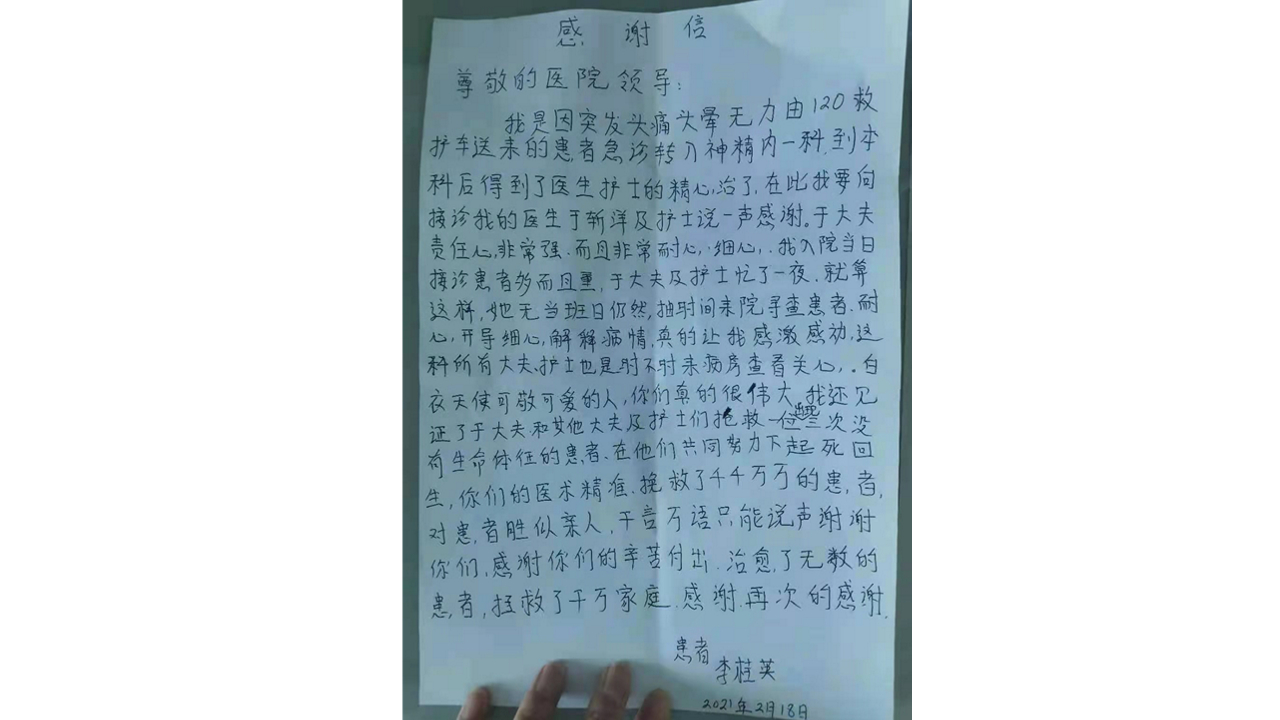 感谢信
尊敬的医院领导：
我是因突发头痛头晕无力由120救
护车送来的患者急诊转入神精内一科.到本
科后得到了医生护士的精心治了.在此我要向
接诊我的医生于斩洋及护士说一声感谢。于大夫
责任心非常强.而且非常耐心.细心.我入院当日
接诊患者多而且重,于大夫及护士忙了一夜.就算
这样,她无当班日仍然,抽时间来院寻查患者.耐
心,开导细心,解释病情.真的让我感激感动,这
科所有大夫.护士也是时不时来病房查看关心.白
衣天使可敬可爱的人,你们真的很伟大.我还见
证了于大夫和其他大夫及护士们抢救一位出现三次没
有生命体征的患者.在他们共同努力下起死回
生,你们的医术精准.挽救了千千万万的患者,
对患者胜似亲人,千言万语只能说声谢谢
你们,感谢你们的辛苦付出.治愈了无数的
患者,拯救了千万家庭.感谢.再次的感谢.
患者
李桂英
2021年2月18日